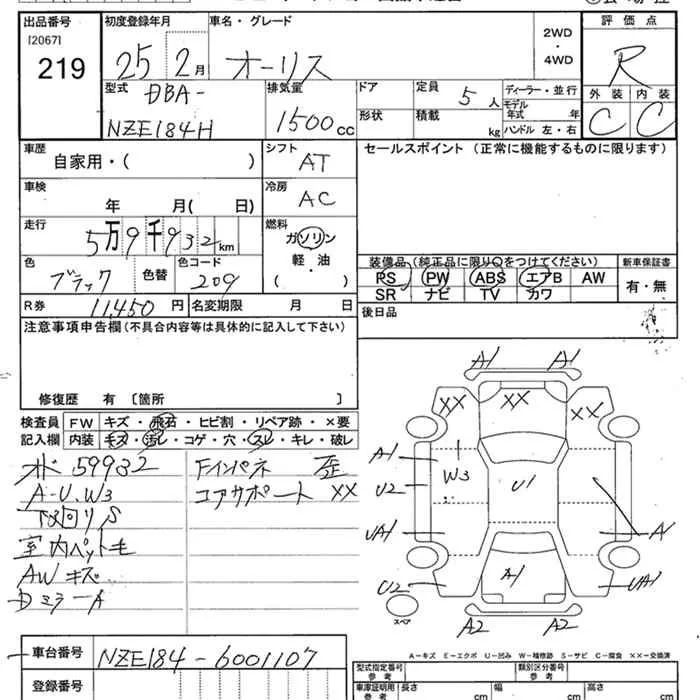 出品番号 初度登録年月 車名・グレード 2WD・4WD 評価点
[2067]
219 25 2月 オーリス R
型式 排気量 ドア 定員 5人 ディーラー・並行 外装 内装
DBA- 形状 積載 kg モデル年式 年 C C
NZE184H 1500cc ハンドル 左・右
車歴 シフト セールスポイント (正常に機能するものに限ります)
自家用・( ) AT
車検 冷房
年 月( 日) AC
走行 燃料
5万9千932km ガソリン
軽・油
( )
色 色コード 装備品(純正品に限り○をつけてください) 新車保証書
ブラック 色替 209 PS PW ABS エアB AW 有・無
SR ナビ TV カワ
R券 11,450円 名変期限 月 日 後日品
注意事項申告欄(不具合内容等は具体的に記入して下さい)
修復歴 有 〔箇所 〕
検査員 FW キズ・飛石・ヒビ割・リペア跡・×要
記入欄 内装 キズ・汚レ・コゲ・穴・スレ・キレ・破レ
59932 Fインパネ 歪
A-U.W3 コアサポート XX
下廻りS
室内ペット毛
AWキズ
ミラーA
A1 A1
XX XX XX
A1 W3
U2 U1
UA1 A1
U2 A1 UA1
スペア A2 A2
A-キズ E-エクボ U-凹み W-補修跡 S-サビ C-腐食 XX-交換済
車台番号 NZE184-6001107 型式指定番号 参考 類別区分番号 参考
登録番号 車庫証明用 参考 長さ cm 幅 cm 高さ cm